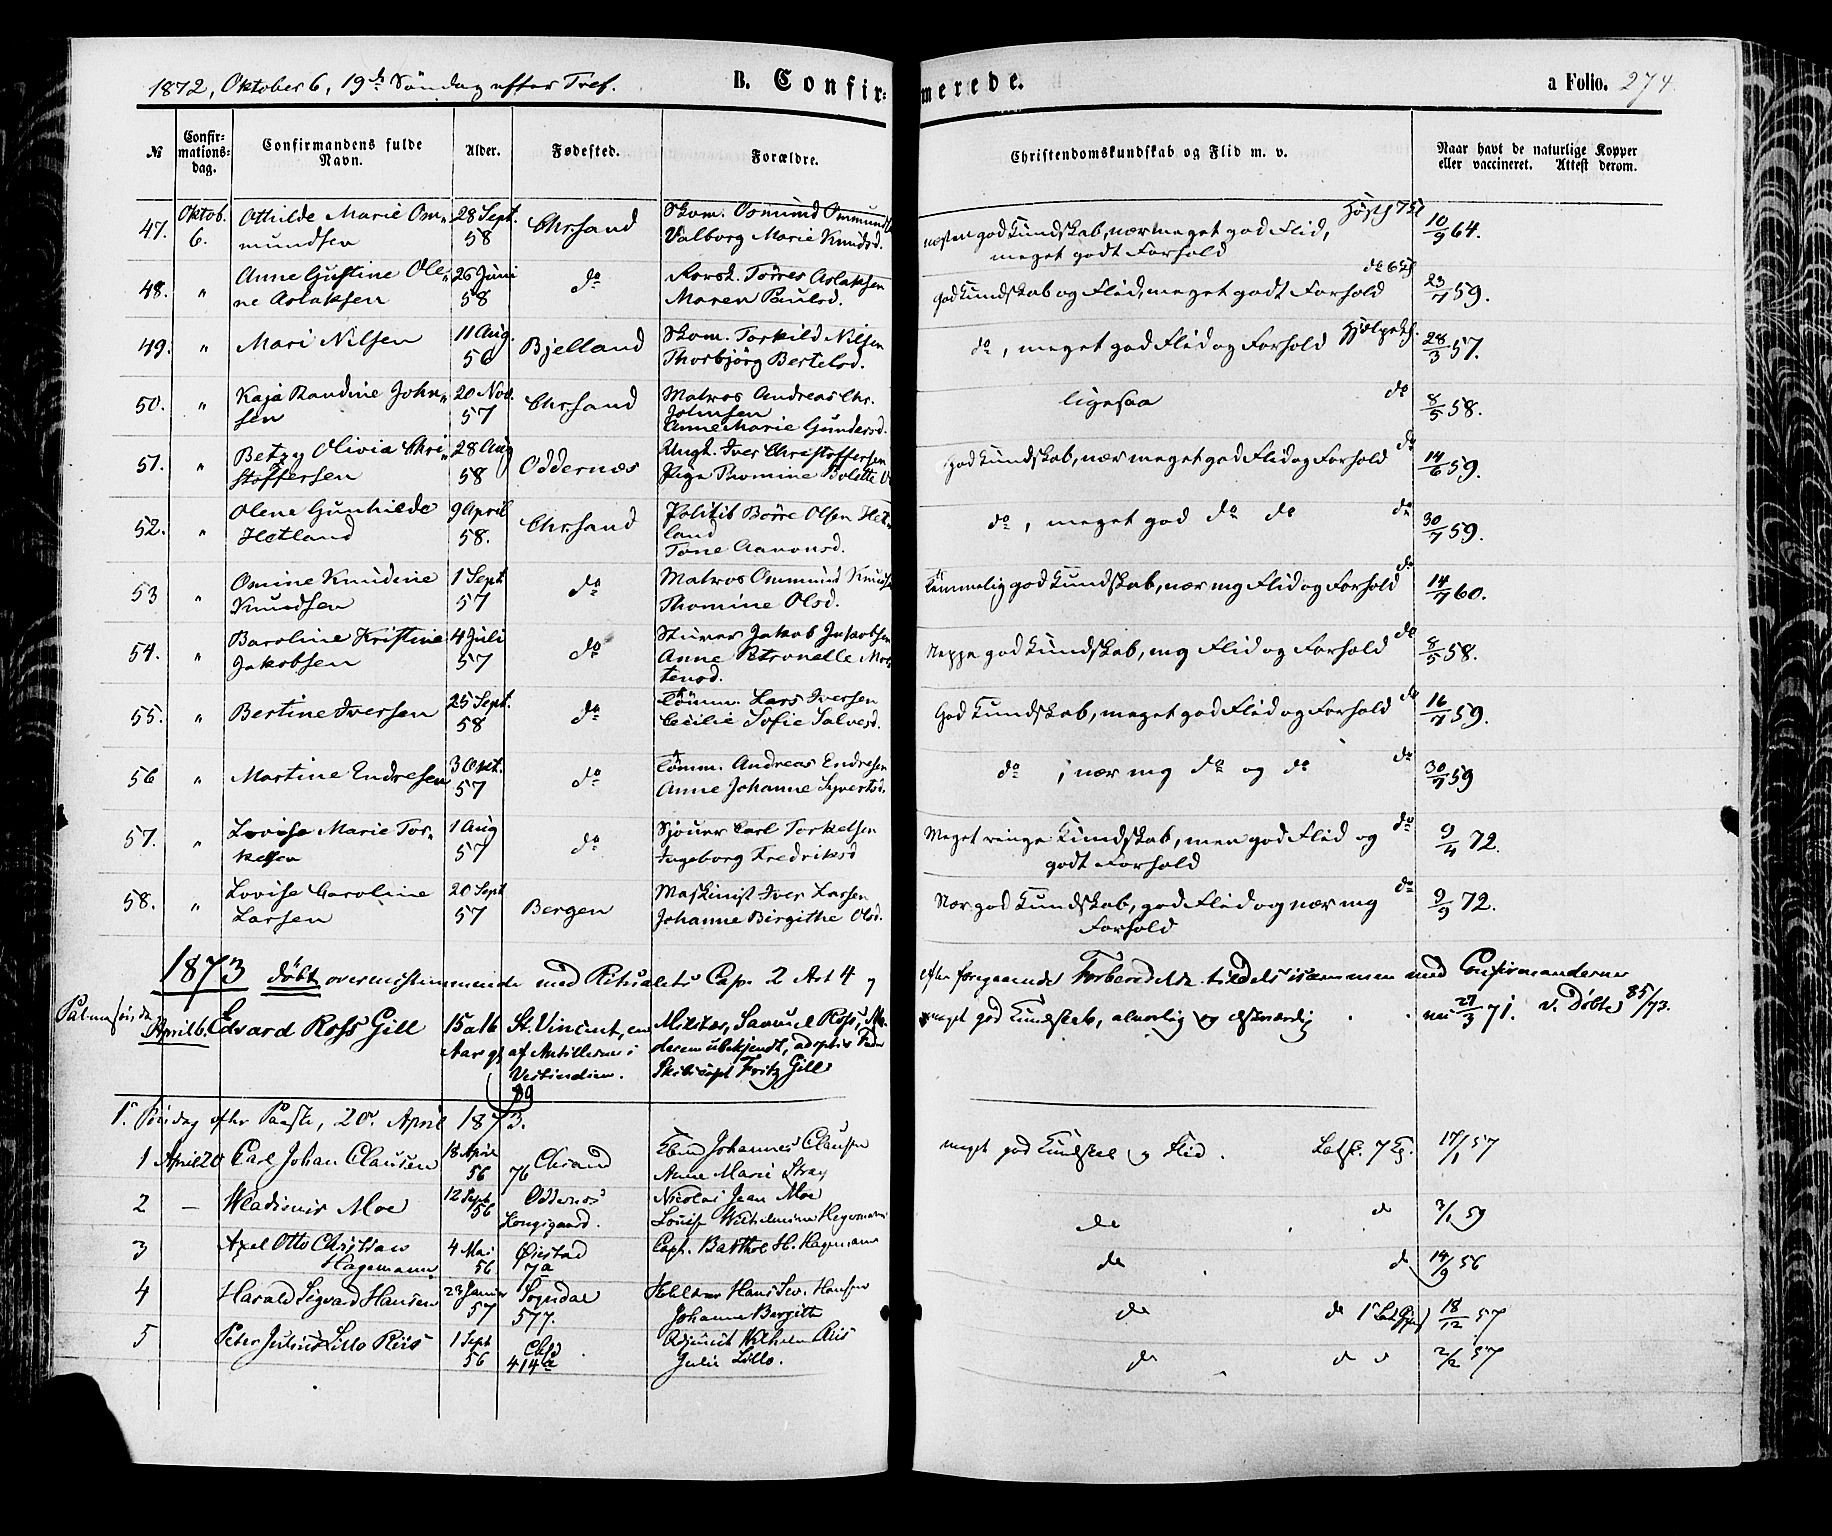 1872, Oktober 6, 19de Søndag efter Tref. B. Confirmerede. a Folio. 274.
№ Confirmations-dag. Confirmandens fulde Navn. Alder. Fødested. Forældre. Christendomskundskab og Flid m. v. Naar havt de naturlige Kopper eller vaccineret. Attest derom.
47. Oktob. 6. Othilde Marie Om- 28 Sept. 58 Chrsand Skom. Osmund Ommunds
mundsen Valborg Marie Knudsd. næsten god Kundskab, nær meget god Flid, 10/9 64.
meget godt Forhold
48. " Anne Gustine Ole- 26 Juni 58 do Torres Aslaksen do
ne Aslaksen Maren Paulsd. god Kundskab og Flid, meget godt Forhold 23/7 59.
49. " Mari Nilsen 11 Aug. 56 Bjelland Skom. Torkild Nilsen
Thorbjörg Bertelsd. do, meget god Flid og Forhold 28/3 57.
50. " Kaja Randine John- 20 Nov. 57 Chrsand Matros Andreas Chr. ligesaa do 8/5 58.
sen Johnsen
Anne Marie Gundersd.
51. " Betzy Olivia Chri- 28 Aug 58 Oddernæs Ungk. Iver Christoffersen do
stoffersen Pige Thomine Bolette God Kundskab, nær meget god Flid og Forhold 14/6 59.
52. " Olene Gunhilde 9 April 58. Chrsand Politib. Börre Olsen Het-
Hetland land
Tone Aanonsd. do, meget god do do do 30/7 59.
53 " Omine Knudine 1 Sept 57 do Matros Ommund Knuds
Knudsen Thomine Olsd. Temmelig god Kundskab, nær mg Flid og Forhold do 14/7 60.
54. " Baroline Kristine 4 Juli 57 do Jakob Jakobsen
Jakobsen Anne Petronelle Mor-
tensd. Neppe god Kundskab, mg Flid og Forhold do 8/5 58.
55. " Bertine Iversen 25 Sept. 58 do Tömm. Lars Iversen
Cecilie Sofie Salvesd. God Kundskab, meget god Flid og Forhold do 16/7 59.
56 " Martine Endresen 3 Okt. 57 do Tömm. Andreas Endresen
Anne Johanne Syvertsd. do, nær mg do og do do 30/7 59
57. " Lovise Marie Tor- 1 Aug 57 do Sjouer Carl Torkelsen
kelsen Ingeborg Fredriksd Meget ringe Kundskab, men god Flid og do 9/4 72.
godt Forhold
58. " Lovise Caroline 20 Sept 57 Bergen Maskinist Iver Larsen
Larsen Johanne Birgithe Olsd. Nær god Kundskab, god Flid og nær mg do 9/9 72.
Forhold
1873 døbt overensstemmende med Ritualets Cap. 2 Art 4 efter foregaaende Forberedelse tildels isammen med Confirmanderne
Palmesøndag
April 6. Edvard Ross Gill 15 a 16 St. Vincent, en Samuel Ross, Mo- meget god Kundskab, alvorlig og elskværdig 27/3 71. v. Døbte 85/73.
Aar gl af Antillerne i deren ubekjendt, adoptiv Fader
Vestindien. Skibscapt Fritz Gill
89
1. Søndag efter Paaske, 20. April 1873.
1 April 20 Carl Johan Clausen 18 April 56 Chrsand 76 Johannes Clausen
Anne Marie Stray meget god Kundskab og Flid. 17/1 57
2 — Wladimir Moe 12 Sept 56 Oddernes Nicolai Jean Moe
Louise Wilhelmine Hegermann do do 3/1 59
3 Axel Otto Christian 4 Mai 56 Øiestad 7a Capt. Barthol H. Hagemann
Hagemann do do 14/9 56
4 Harald Sigvard Hansen 23 Januar 57 Sogndal 577. Hans Sev. Hansen
Johanne Bergitte do do 18/12 57
5 Peter Julius Lillo Riis 1 Sept 56 Chsd 414a Adjunct Wilhelm Riis
Julie Lillo. do do 2/2 57